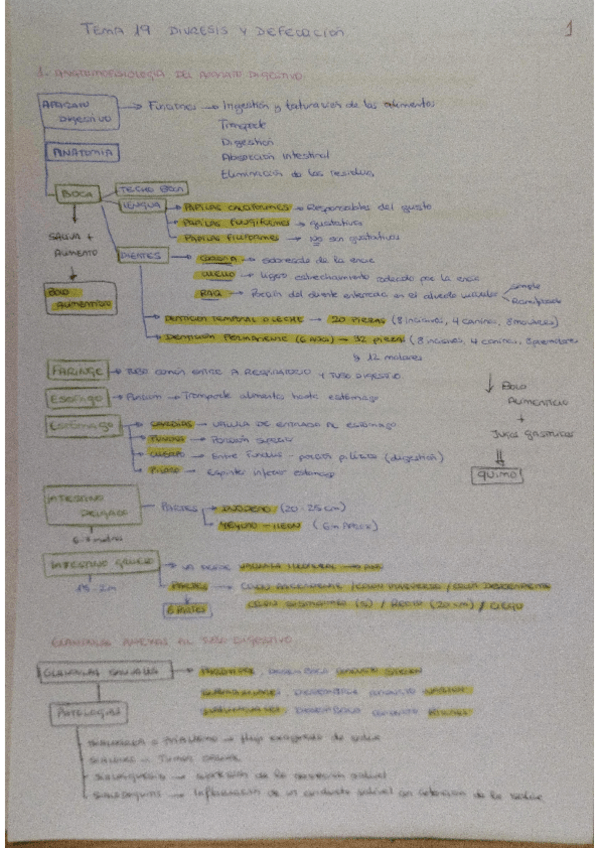 TEMA 19 DIURESIS Y DEFECACIÓN.
1
1. ANATOMOFISIOLOGÍA DEL APARATO DIGESTIVO.
APARATO DIGESTIVO → Funciones → Ingestión y trituración de los alimentos
Transporte
Digestión
ANATOMÍA
Absorción intestinal
Eliminación de los residuos
BOCA
TECHO BOCA
LENGUA
PAPILAS CALICIFORMES → Responsables del gusto
PAPILAS FUNGIFORMES → gustativas
PAPILAS FILIFORMES → No son gustativas
SALIVA + ALIMENTO
BOLO ALIMENTICIO
DIENTES
CORONA → sobresale de la encía
CUELLO → ligero estrechamiento rodeado por la encía
RAÍZ → Porción del diente enterrada en el alveolo
Ramificada
DENTICIÓN TEMPORAL O LECHE → 20 PIEZAS (8 incisivos, 4 caninos, 8 molares)
DENTICIÓN PERMANENTE (6 AÑOS) → 32 PIEZAS (8 incisivos, 4 caninos, 8 premolares
↳ 12 molares
FARINGE → TUBO COMÚN ENTRE A. RESPIRATORIO Y TUBO DIGESTIVO.
ESOFAGO → Función → Transporte alimentos hasta estómago
↓ BOLO ALIMENTICIO
+
JUGOS GASTRICOS
⇓
QUIMO
ESTÓMAGO
CARDIAS → VÁLVULA DE ENTRADA AL ESTÓMAGO
FUNDUS → Porción superior
CUERPO → Entre Fundus - porción pilórica (digestión)
PILORO → Esfinter inferior estómago
INTESTINO DELGADO → PARTES
DUODENO (20-25 cm)
YEYUNO - ILEON (6 m Aprox)
6-7 metros
INTESTINO GRUESO → VA DESDE VÁLVULA ILEOCECAL → ANO
1'5 - 2 m
PARTES → COLON ASCENDENTE / COLON TRANSVERSO / COLON DESCENDENTE
COLON SIGMOIDEO (S) / RECTO (20 cm) / CIEGO
GLANDULAS ANEXAS AL TUBO DIGESTIVO.
GLANDULAS SALIVALES
PAROTIDAS, DESEMBOCA CONDUCTO STENON
SUBMAXILARES, DESEMBOCA CONDUCTO WARTON
SUBLINGUALES, DESEMBOCA CONDUCTO
PATOLOGÍAS
SIALORREA o PTIALISMO → flujo exagerado de saliva
→ Tumor
→ supresión de la secreción salival
→ Inflamación de un conducto salival con retención de la saliva